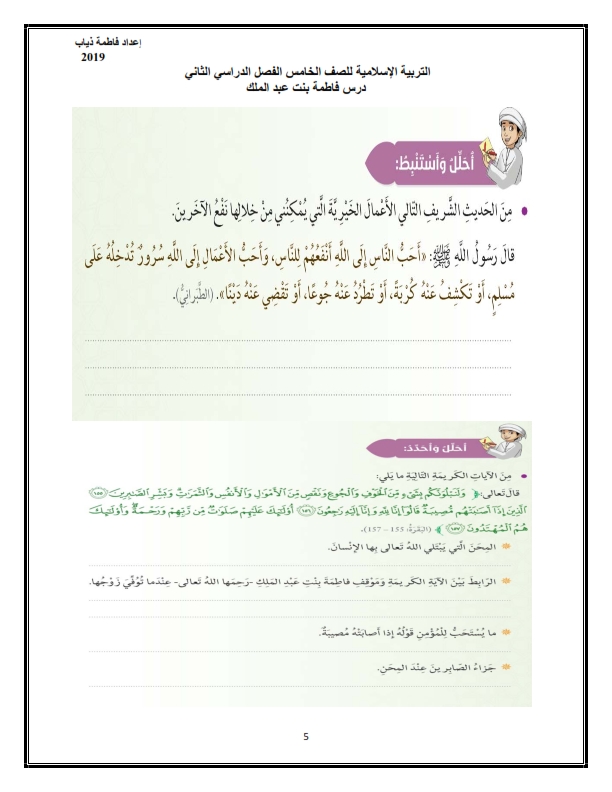 إعداد فاطمة ذياب
2019
التربية الإسلامية للصف الخامس الفصل الدراسي الثاني
درس فاطمة بنت عبد الملك
أُحَلِّلُ وَأَسْتَنْبِطُ:
• مِنَ الحَديثِ الشَّريفِ التّالي الأَعْمالَ الخَيْرِيَّةَ الَّتي يُمْكِنُني مِنْ خِلالِها نَفْعُ الآخَرينَ.
قالَ رَسُولُ اللَّهِ ﷺ: «أَحَبُّ النَّاسِ إِلَى اللَّهِ أَنْفَعُهُمْ لِلنَّاسِ، وَأَحَبُّ الأَعْمَالِ إِلَى اللَّهِ سُرُورٌ تُدْخِلُهُ عَلَى
مُسْلِمٍ، أَوْ تَكْشِفُ عَنْهُ كُرْبَةً، أَوْ تَطْرُدُ عَنْهُ جُوعًا، أَوْ تَقْضِي عَنْهُ دَيْنًا». (الطَّبَرانِيُّ).
أُحَلِّلُ وَأُحَدِّدُ:
• مِنَ الآياتِ الكَريمَةِ التّالِيَةِ ما يَلي:
قالَ تَعالى: ﴿ وَلَنَبْلُوَنَّكُم بِشَىْءٍ مِّنَ ٱلْخَوْفِ وَٱلْجُوعِ وَنَقْصٍ مِّنَ ٱلْأَمْوَٰلِ وَٱلْأَنفُسِ وَٱلثَّمَرَٰتِ وَبَشِّرِ ٱلصَّٰبِرِينَ ١٥٥
ٱلَّذِينَ إِذَآ أَصَٰبَتْهُم مُّصِيبَةٌ قَالُوٓا۟ إِنَّا لِلَّهِ وَإِنَّآ إِلَيْهِ رَٰجِعُونَ ١٥٦ أُو۟لَٰٓئِكَ عَلَيْهِمْ صَلَوَٰتٌ مِّن رَّبِّهِمْ وَرَحْمَةٌ وَأُو۟لَٰٓئِكَ
هُمُ ٱلْمُهْتَدُونَ ١٥٧ ﴾ (البَقَرَةُ: 155 – 157).
المِحَنَ الَّتي يَبْتَلي اللهُ تَعالى بِها الإِنْسانَ.
الرّابِطَ بَيْنَ الآيَةِ الكَريمَةِ وَمَوْقِفِ فاطِمَةَ بِنْتِ عَبْدِ المَلِكِ -رَحِمَها اللهُ تَعالى- عِنْدَما تُوُفِّيَ زَوْجُها.
ما يُسْتَحَبُّ لِلْمُؤْمِنِ قَوْلُهُ إِذا أَصابَتْهُ مُصيبَةٌ.
جَزاءُ الصّابِرينَ عِنْدَ المِحَنِ.
5